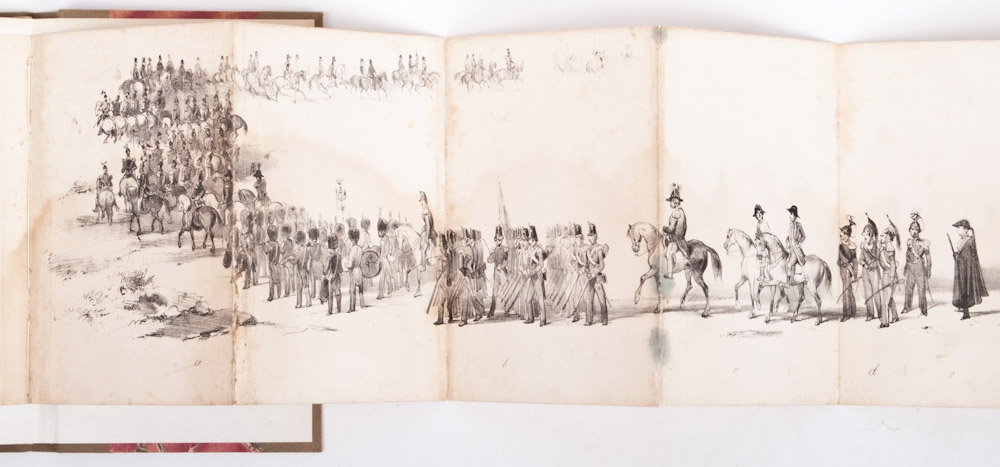 a
b
c
d
e